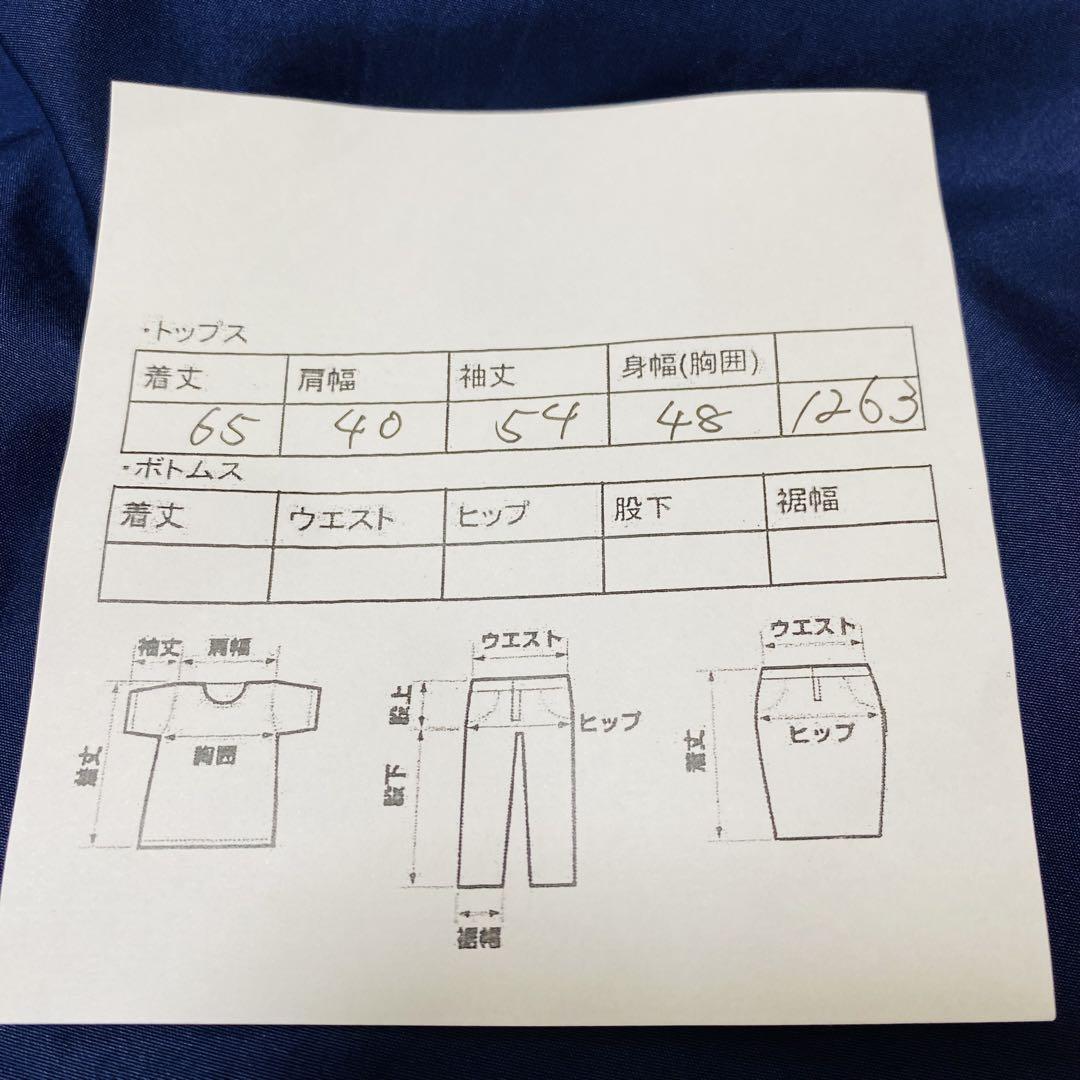 ・トップス
着丈 肩幅 袖丈 身幅(胸囲)
65 40 54 48 1263
・ボトムス
着丈 ウエスト ヒップ 股下 裾幅
袖丈 肩幅
着丈
胸囲
ウエスト
股上
ヒップ
股下
裾幅
ウエスト
ヒップ
着丈